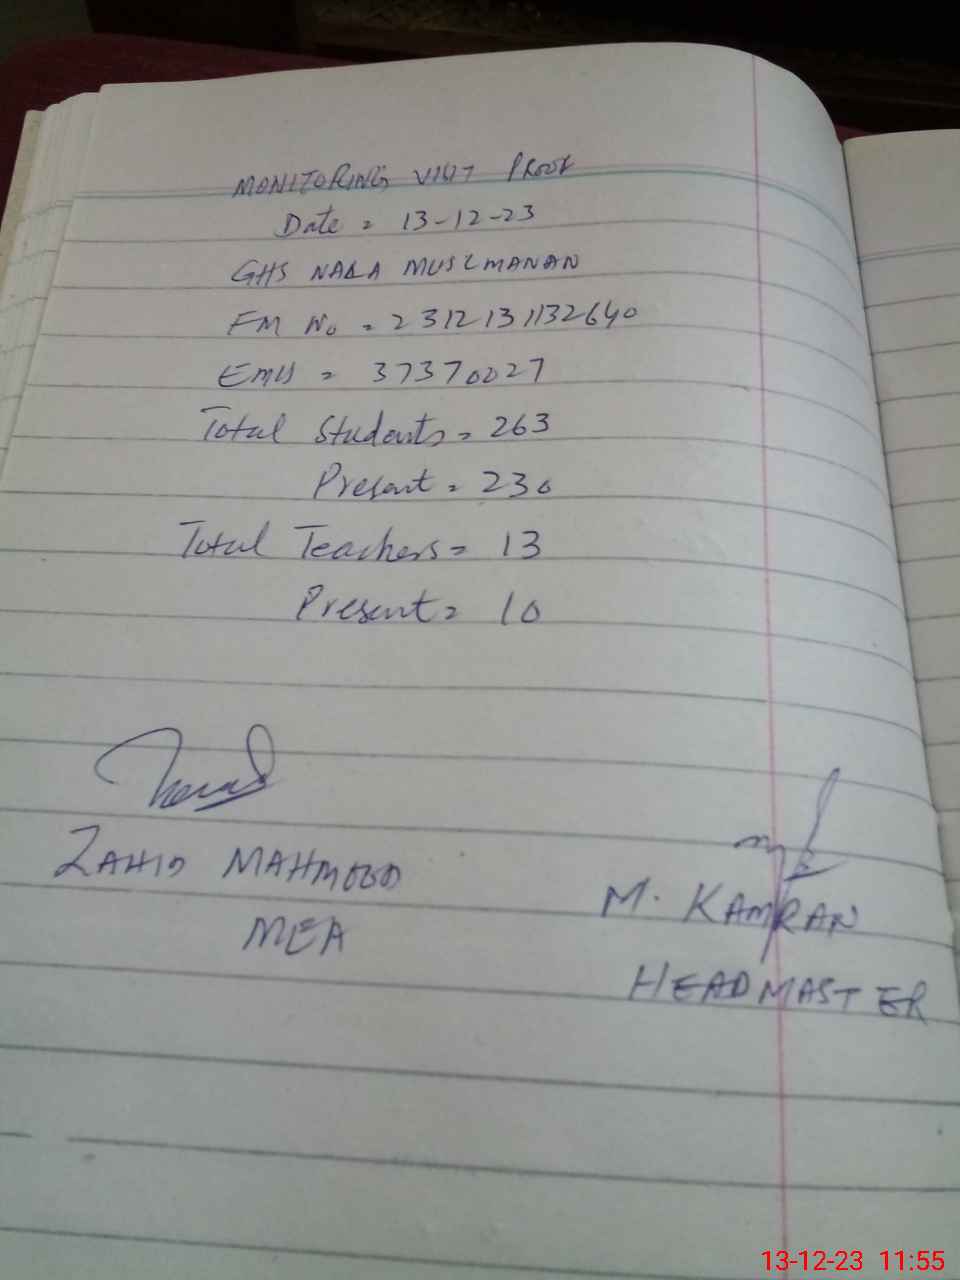 MONITORING VISIT PROOF
Date = 13-12-23
GHS NARA MUSLMANAN
FM No = 2312131132640
EMIS = 37370027
Total Students = 263
Present = 230
Total Teachers = 13
Present = 10
ZAHID MAHMOOD
MEA
M. KAMRAN
HEADMASTER
13-12-23 11:55